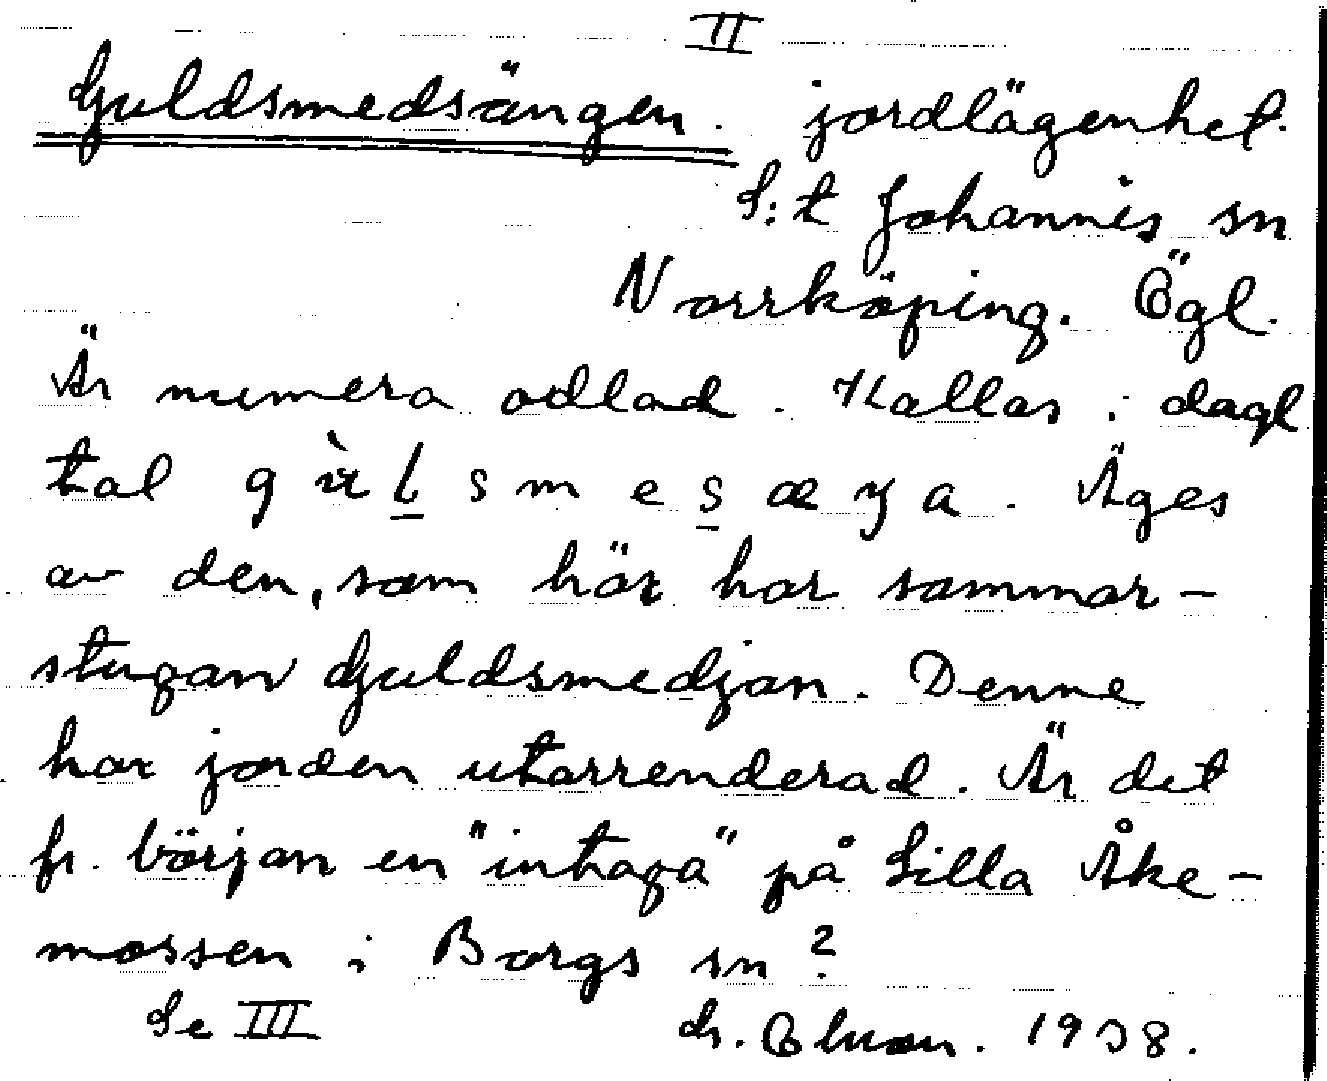 II
Guldsmedsängen. jordlägenhet.
S:t Johannis sn
Norrköping. Ögl.
Är numera odlad. Kallas i dagl
tal g ù l s m e s æ ŋ a. Äges
av den, som här har sommar-
stugan Guldsmedjan. Denne
har jorden utarrenderad. Är det
fr. början en "intaga" på Lilla Åke-
mossen i Borgs sn?
Se III 1938.